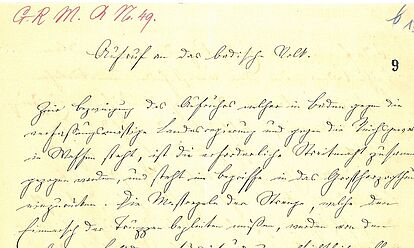 G R M. A N. 49.
6
9
Aufruf an das badische Volk.
Zur Bezwingung des Aufruhrs welcher in Baden gegen die
verfassungsmäßige Landesregierung und gegen die Reichsgewalt
in Waffen steht, ist die erforderliche Streitmacht zusammen
gezogen worden, und steht im Begriffe in das Großherzogthum
einzurücken. Die Maßregeln der Strenge, welche den
Einmarsch der Truppen begleiten müssen, werden von dem